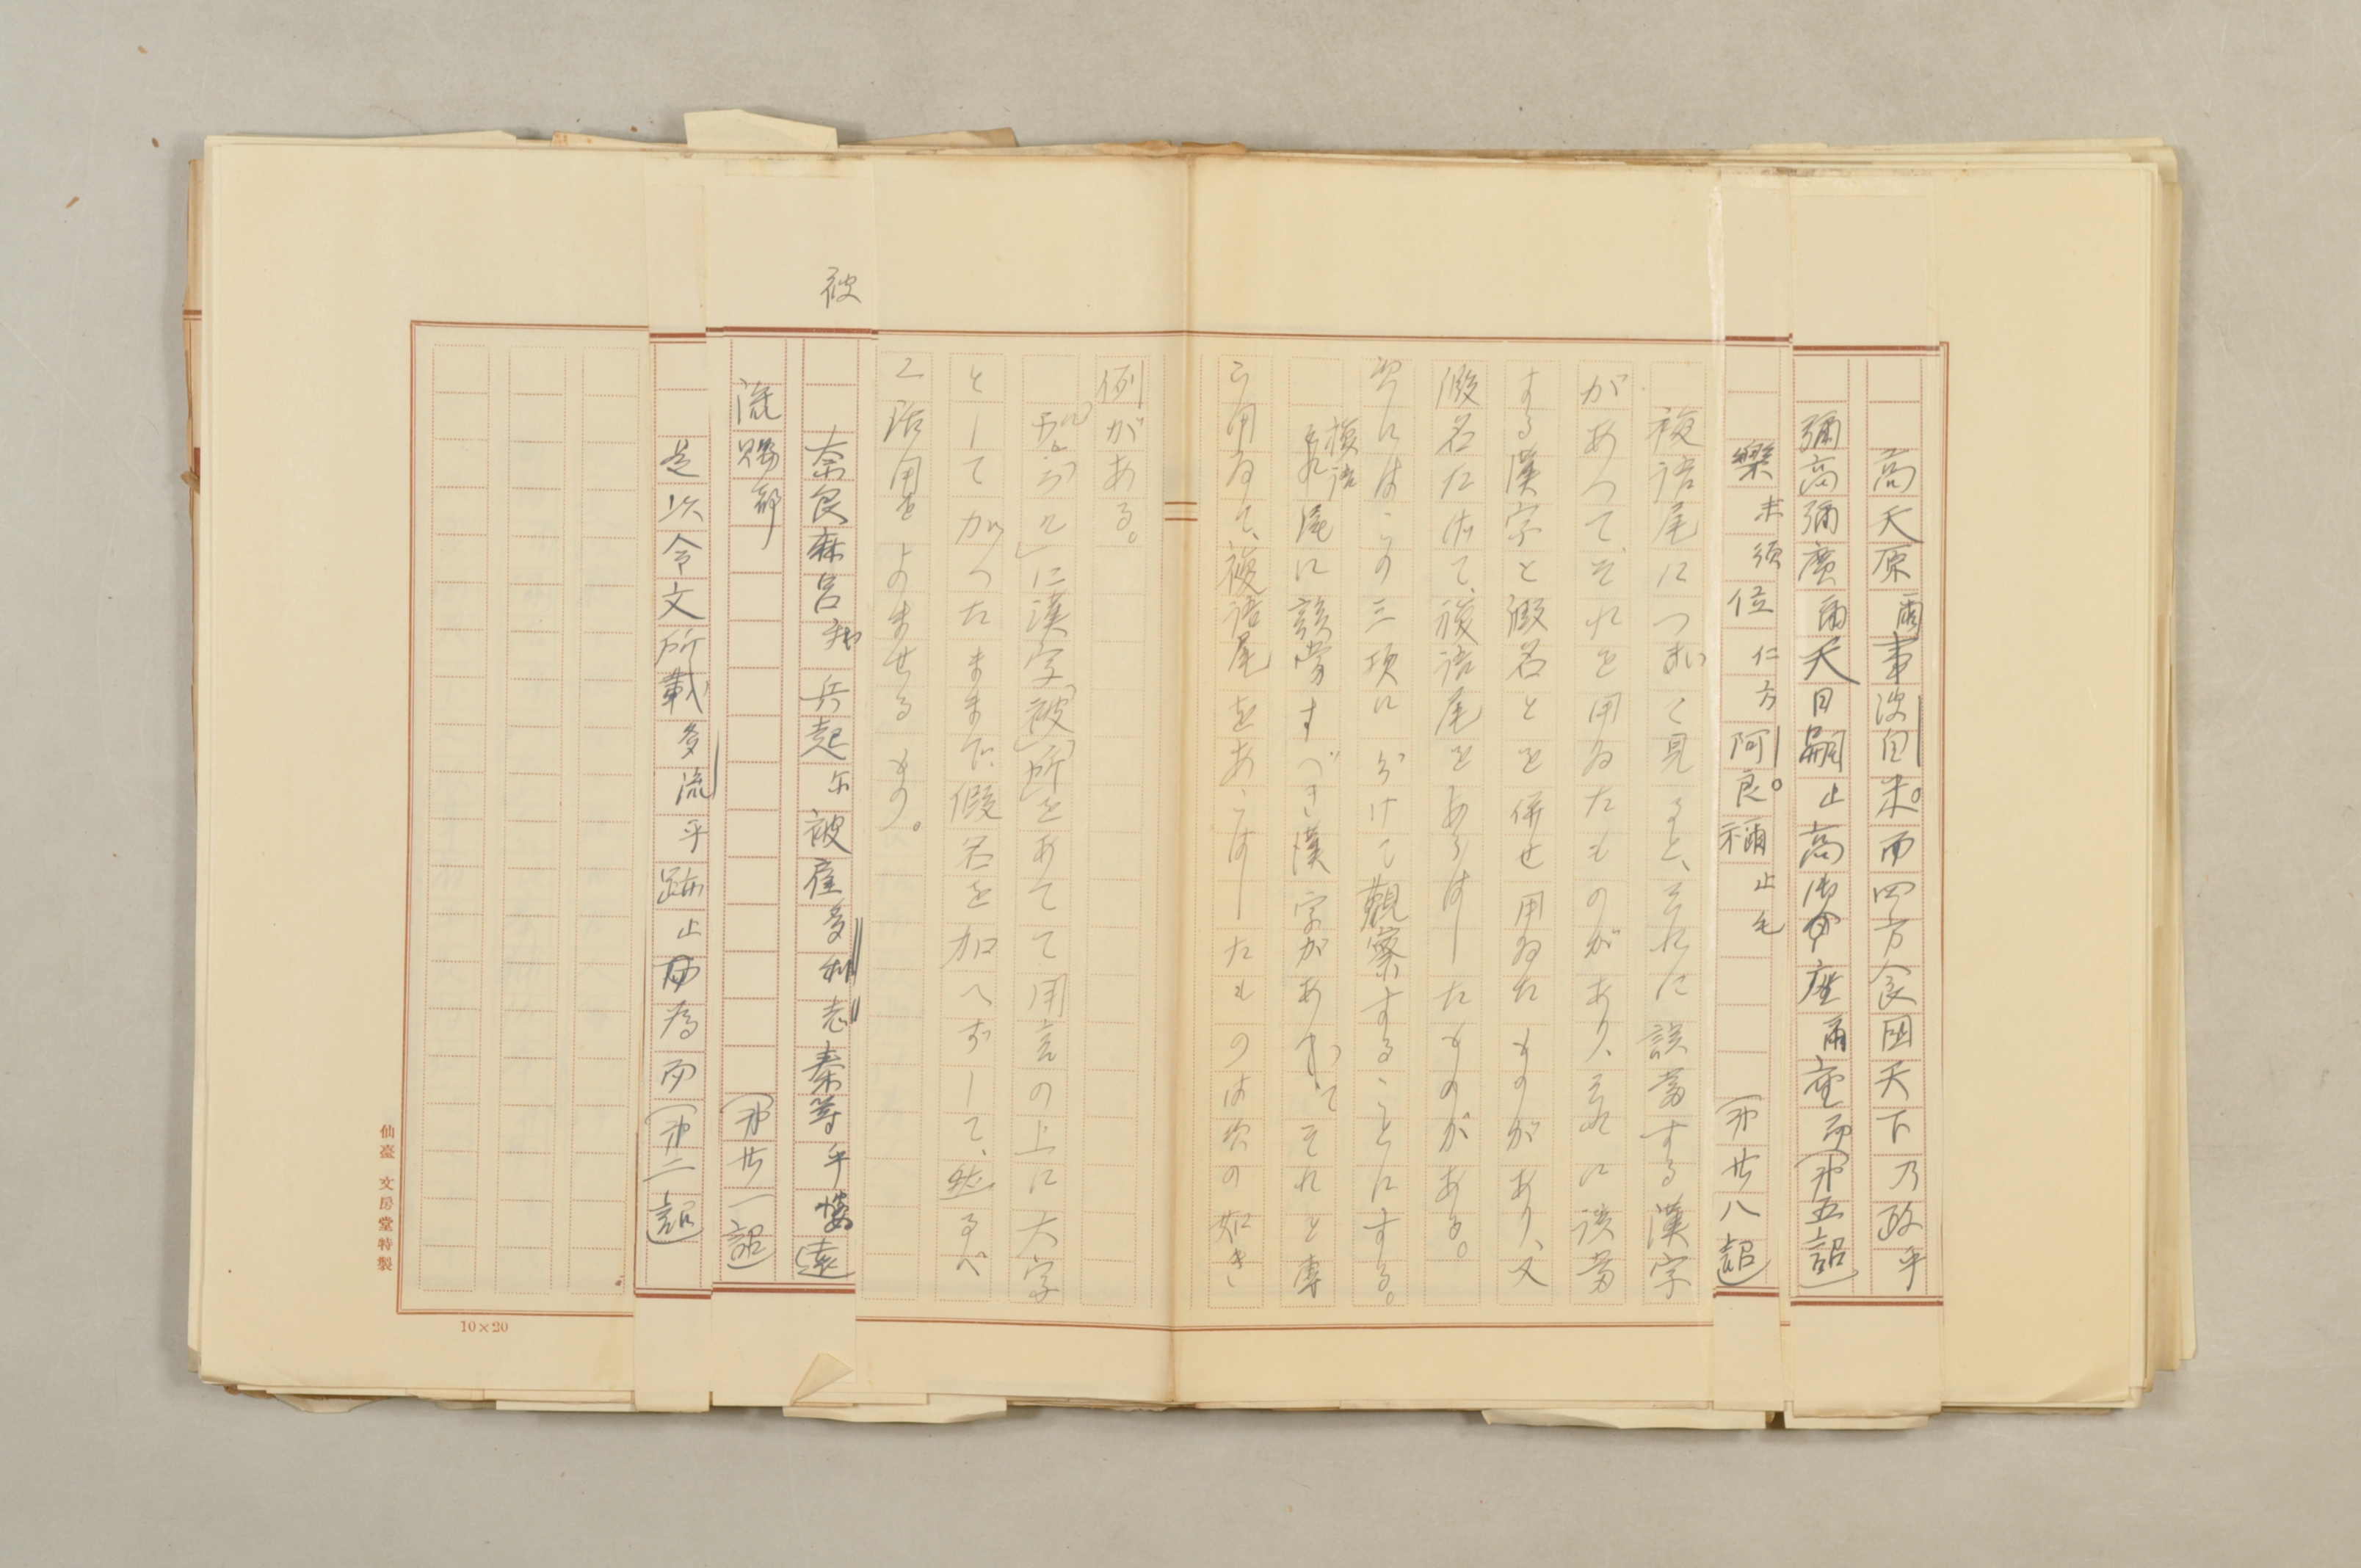 高天原爾事波自米而四方食国天下乃政乎
彌高彌廣爾天日嗣止高御座爾座而(第五詔)
樂末須位仁方阿良禰止毛(第廿八詔)
複語尾につきて見ると、それに該当する漢字
があつて、それを用ゐたものがあり、それに該当
する漢字と假名とを併せ用ゐたものがあり、又
假名だけで、複語尾をあらはしたものがある。
次にはこの三項に分けて観察することにする。
複語尾に該当すべき漢字があつて、それを専
ら用ゐて、複語尾をあらはしたものは次の如き
例がある。
に漢字「被」「所」をあてて用言の上に大字
としてかいたままで、假名を加へずして、然るべ
く活用をよのませるもの。
被
奈良麻呂我兵起尓被雇多利志秦等乎遠
流賜都(第廿一詔)
是以令文所載多流乎跡止為而(第二詔)
仙臺 文房堂特製
10×20